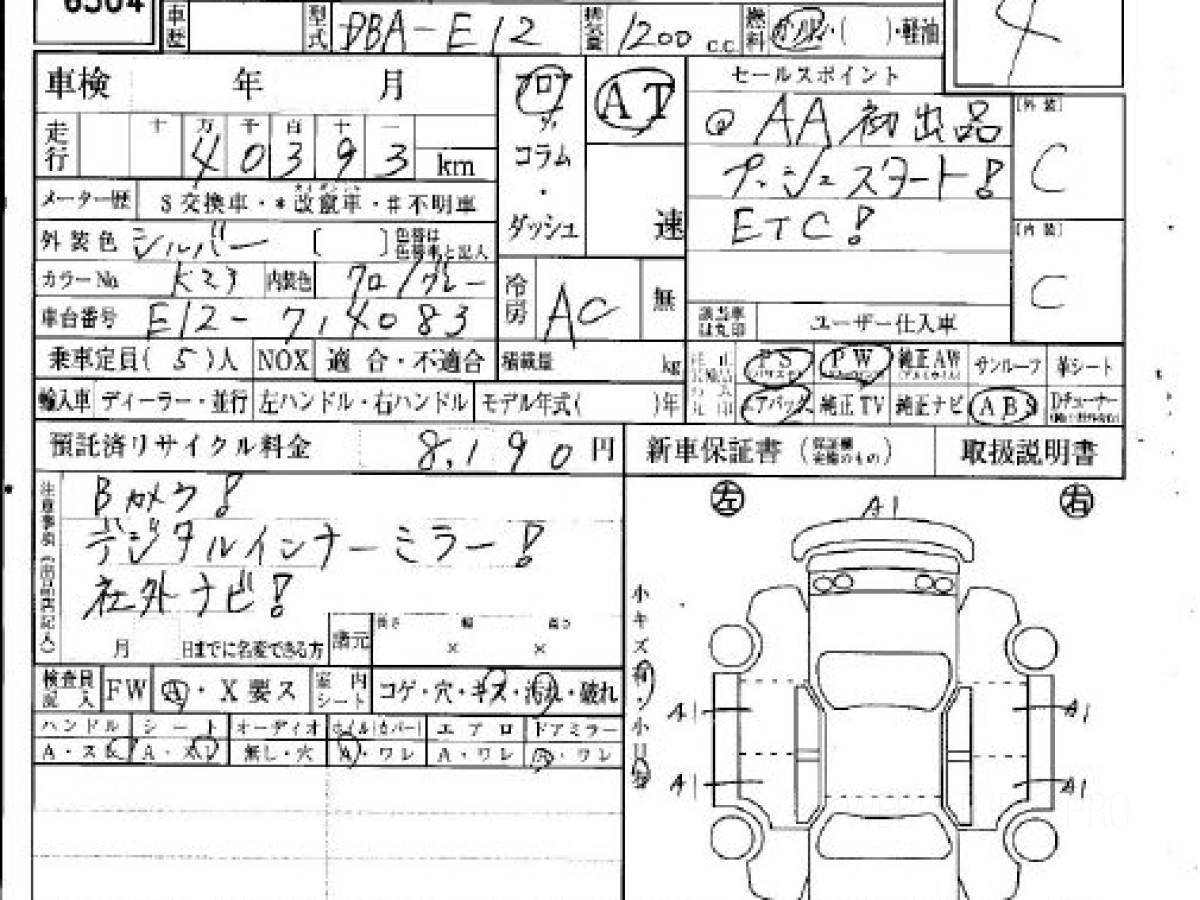 6504
車歴 型式 DBA-E12 排気量 1200 c.c. 燃料 ガソリン・( )・軽油 4
車検 年 月 フロア AT セールスポイント
◎AA初出品 [外装] C
走行 十 万 千 百 十 一
4 0 3 9 3 km コラム プッシュスタート!
メーター歴 $交換車・*改竄車・#不明車 ・
外装色 シルバー [ ] 色替は色替車と記入 ダッシュ 速 ETC! [内装] C
カラーNo. K23 内装色 クロ/グレー 冷房 AC 無
車台番号 E12-714083 該当車は丸印 ユーザー仕入車
乗車定員(5)人 NOX 適合・不適合 積載量 kg PS PW 純正AW サンルーフ 革シート
輸入車 ディーラー・並行 左ハンドル・右ハンドル モデル年式( )年 エアバック 純正TV 純正ナビ ABS Dチューナー
預託済リサイクル料金 8,190 円 新車保証書 (保証欄実施のもの) 取扱説明書
注意事項(出品店記入) Bカメラ! 左 A1 右
デジタルインナーミラー!
社外ナビ!
月 日までに名変できる方 諸元 長さ × 幅 × 高さ
小キズ有・小凹有
検査員記入 FW A・X要ス 室内シート コゲ・穴・キズ・汚れ・破れ
ハンドル シート オーディオ ホイル(カバー) エアロ ドアミラー A1 A1
A・スレ A・スレ 無し・穴 A・ワレ A・ワレ A・ワレ
A1 A1